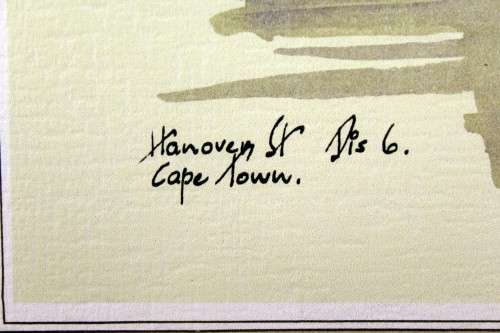 Hanover St Dis 6.
Cape Town.